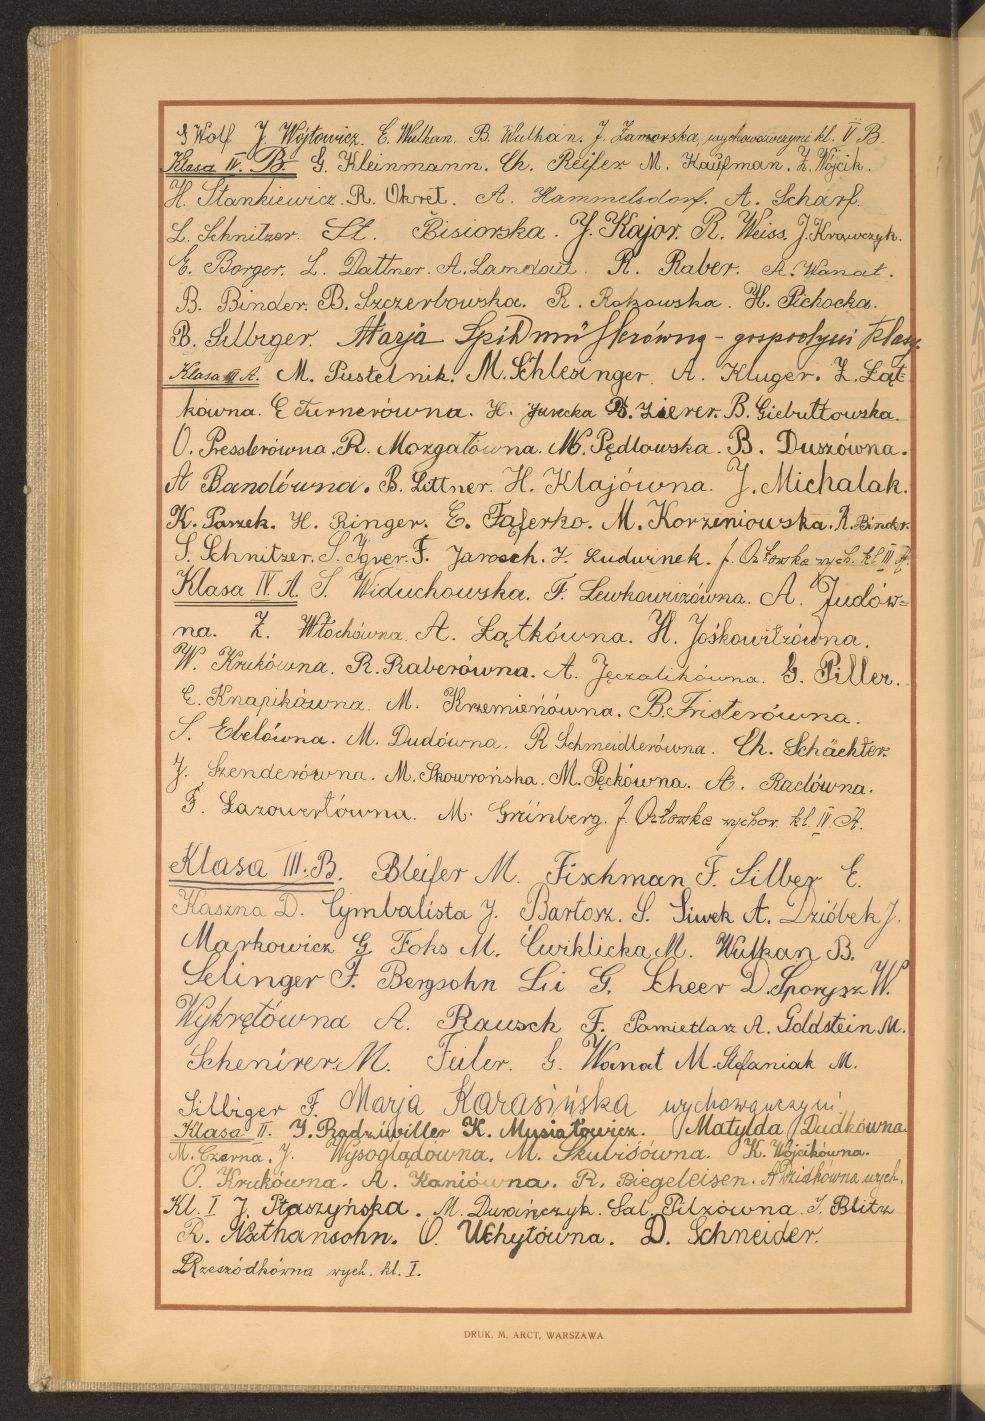 S Wolf J. Wójtowicz. E. Wulkan. B. Wulkan. J. Zamorska, wychowawczyni kl. V B.
Klasa IV. B. G. Kleinmann. Ch. Reifer. M. Kaufman. Z. Wójcik.
H. Stankiewicz. R. Okręt. A. Hammelsdorf. A. Scharf.
L. Schnitzer. St. Bisiorska. J. Kajor. R. Weiss. J. Krawczyk.
E. Borger. L. Dattner. A. Landau. R. Raber. A. Wanat.
B. Binder. B. Szczerbowska. R. Rakowska. H. Pichocka.
B. Silbiger. Marja – gospodyni klasy.
Klasa III A. M. Pustelnik. M. Schlesinger. A. Kluger. Z. Łąt-
kówna. E Turnerówna. H. Jurecka B. Zierer. B. Giebułtowska.
O. Presslerówna. R. Mozgałówna. M. Pędlowska. B. Duszówna.
A Bandówna. B. Littner. H. Klajówna. J. Michalak.
K. Paszek. H. Ringer. E. Fąferko. M. Korzeniowska. A. Binder.
S. Schnitzer. S. Igver. F. Jarosch. Z. Ludwinek. J. Orłowska wych. kl III A.
Klasa IV. A. S. Widuchowska. F. Lewkowiczówna. A. Judów=
na. Z. Włochówna. A. Łątkówna. H. Jośkowitzówna.
W. Krukówna. R. Raberówna. A. Jęczalikówna. G. Piller.
E. Knapikówna. M. Krzemieńówna. B. Fristerówna.
S. Ebelówna. M. Dudówna. R Schmeidlerówna. Ch. Schächter.
J. Szenderówna. M. Skowrońska. M. Pęckówna. A. Raclówna.
F. Lazowertówna. M. Grünberg. J. Orłowska wychow. kl. IV A.
Klasa III. B. Bleifer M. Fischman F. Silber E.
Kaszna D. Cymbalista J. Bartosz. S. Siwek A. Dzióbek J.
Markowicz G Foks M. Ćwiklicka M. Wulkan B.
Selinger F. Bergsohn Lii G. Scheer D. Sporysz W.
Wykrętówna A. Rausch F. Pamietlarz A. Goldstein M.
Schenirer M. Feiler. G. Wanat M. Stefaniak M.
Silbiger F. Marja Karasińska wychowawczyni
Klasa II. J. Radziwiller K. Musiałowicz. Matylda Dudkówna
M. Czarna. J. Wysoglądówna. M. Skubisówna. K. Wójcikówna.
O. Krukówna. A. Kaniówna. R. Biegeleisen. A Dziatkówna wych.
Kl. I J. Ptaszyńska. M. Duraińczyk. Sal. Pilzówna. S. Blitz
R. Nathansohn. O. Uchytówna. D. Schneider.
Rzeszódkówna wych. kl. I.
DRUK. M. ARCT, WARSZAWA